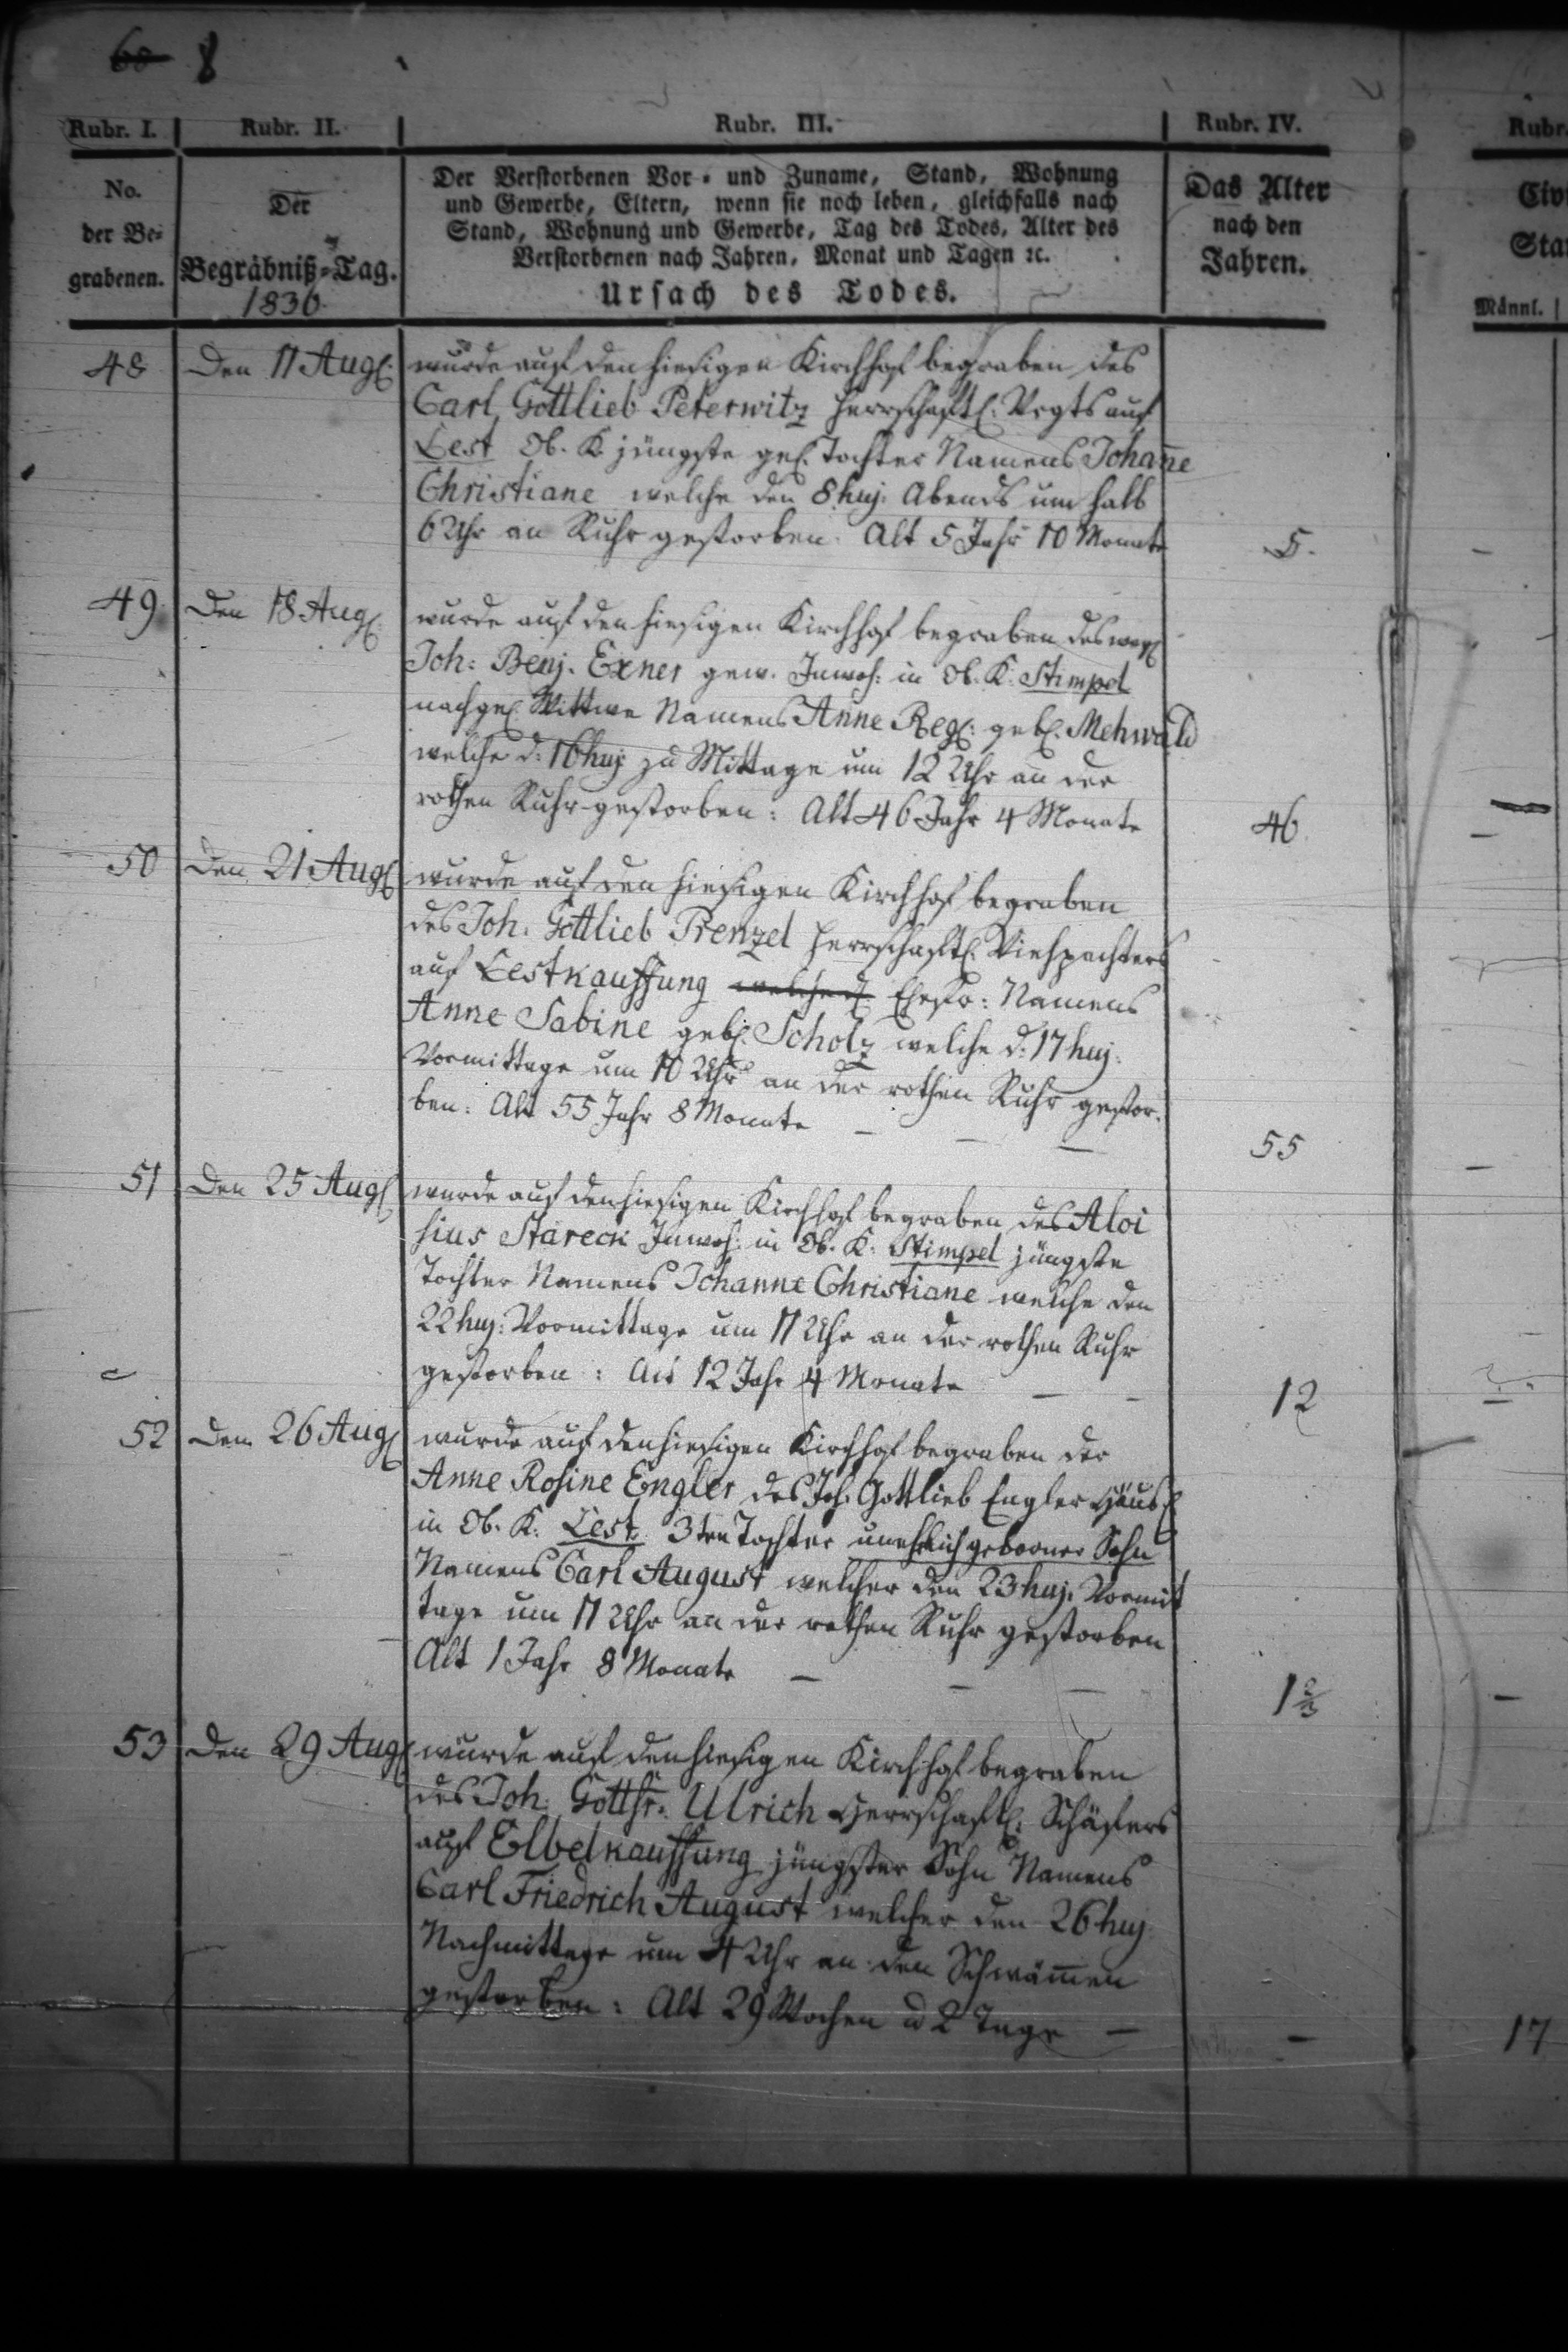 60 8
Rubr. I. Rubr. II. Rubr. III. Rubr. IV. Rubr.
No. der Be- grabenen.
Der Begräbniß-Tag. 1830
Der Verstorbenen Vor- und Zuname, Stand, Wohnung
und Gewerbe, Eltern, wenn sie noch leben, gleichfalls nach
Stand, Wohnung und Gewerbe, Tag des Todes, Alter des
Verstorbenen nach Jahren, Monat und Tagen ꝛc.
Ursach des Todes.
Das Alter
nach den
Jahren.
Civi
Sta
Männl.
48 Den 11 Aug. wurde auf den hiesigen Kirchhof begraben des
Carl Gottlieb Peterwitz herrschaftl. Vogts auf
Lest Ob. K. jüngste gel. Tochter Namens Johañe
Christiane welche den 8 huj. Abends um halb
6 Uhr an Ruhr gestorben. Alt 5 Jahr 10 Monate 5.
49 Den 18 Aug. wurde auf den hiesigen Kirchhof begraben des weyl
Joh: Benj. Exner gew. Inwoh: in Ob. K. Stimpel
nachgel. Wittwe Namens Anne Reg: geb. Mehwald
welche d: 16 huj zu Mittage um 12 Uhr an der
rothen Ruhr gestorben: Alt 46 Jahr 4 Monate 46
50 Den 21 Aug. wurde auf den hiesigen Kirchhof begraben
des Joh. Gottlieb Prenzel herrschaftl. Viehpachters
auf Lestkauffung welche d. Ehefr: Namens
Anne Sabine geb. Scholz welche d: 17 huj.
Vormittage um 10 Uhr an der rothen Ruhr gestor-
ben: Alt 55 Jahr 8 Monate — — — 55
51 Den 25 Aug. wurde auf den hiesigen Kirchhof begraben des Aloi
sius Stareck Inwoh: in Ob. K. Stimpel jüngste
Tochter Namens Johanne Christiane welche den
22 huj: Vormittage um 11 Uhr an der rothen Ruhr
gestorben: Alt 12 Jahr 4 Monate — — 12
52 Den 26 Aug. wurde auf den hiesigen Kirchhof begraben der
Anne Rosine Engler des Joh. Gottlieb Engler Häusl
in Ob. K. Lest 3ten Tochter unehelich geborner Sohn
Namens Carl August welcher den 23 huj. Vormit
tage um 11 Uhr an der rothen Ruhr gestorben
Alt 1 Jahr 8 Monate — — — 1⅔
53 Den 29 Aug. wurde auf den hiesigen Kirchhof begraben
des Joh. Gottfr. Ulrich Herrschaftl. Schäfers
auf Elbelkauffung jüngster Sohn Namens
Carl Friedrich August welcher den 26 huj
Nachmittage um 4 Uhr an den Schwämen
gestorben: Alt 29 Wochen u 2 Tage — — 17